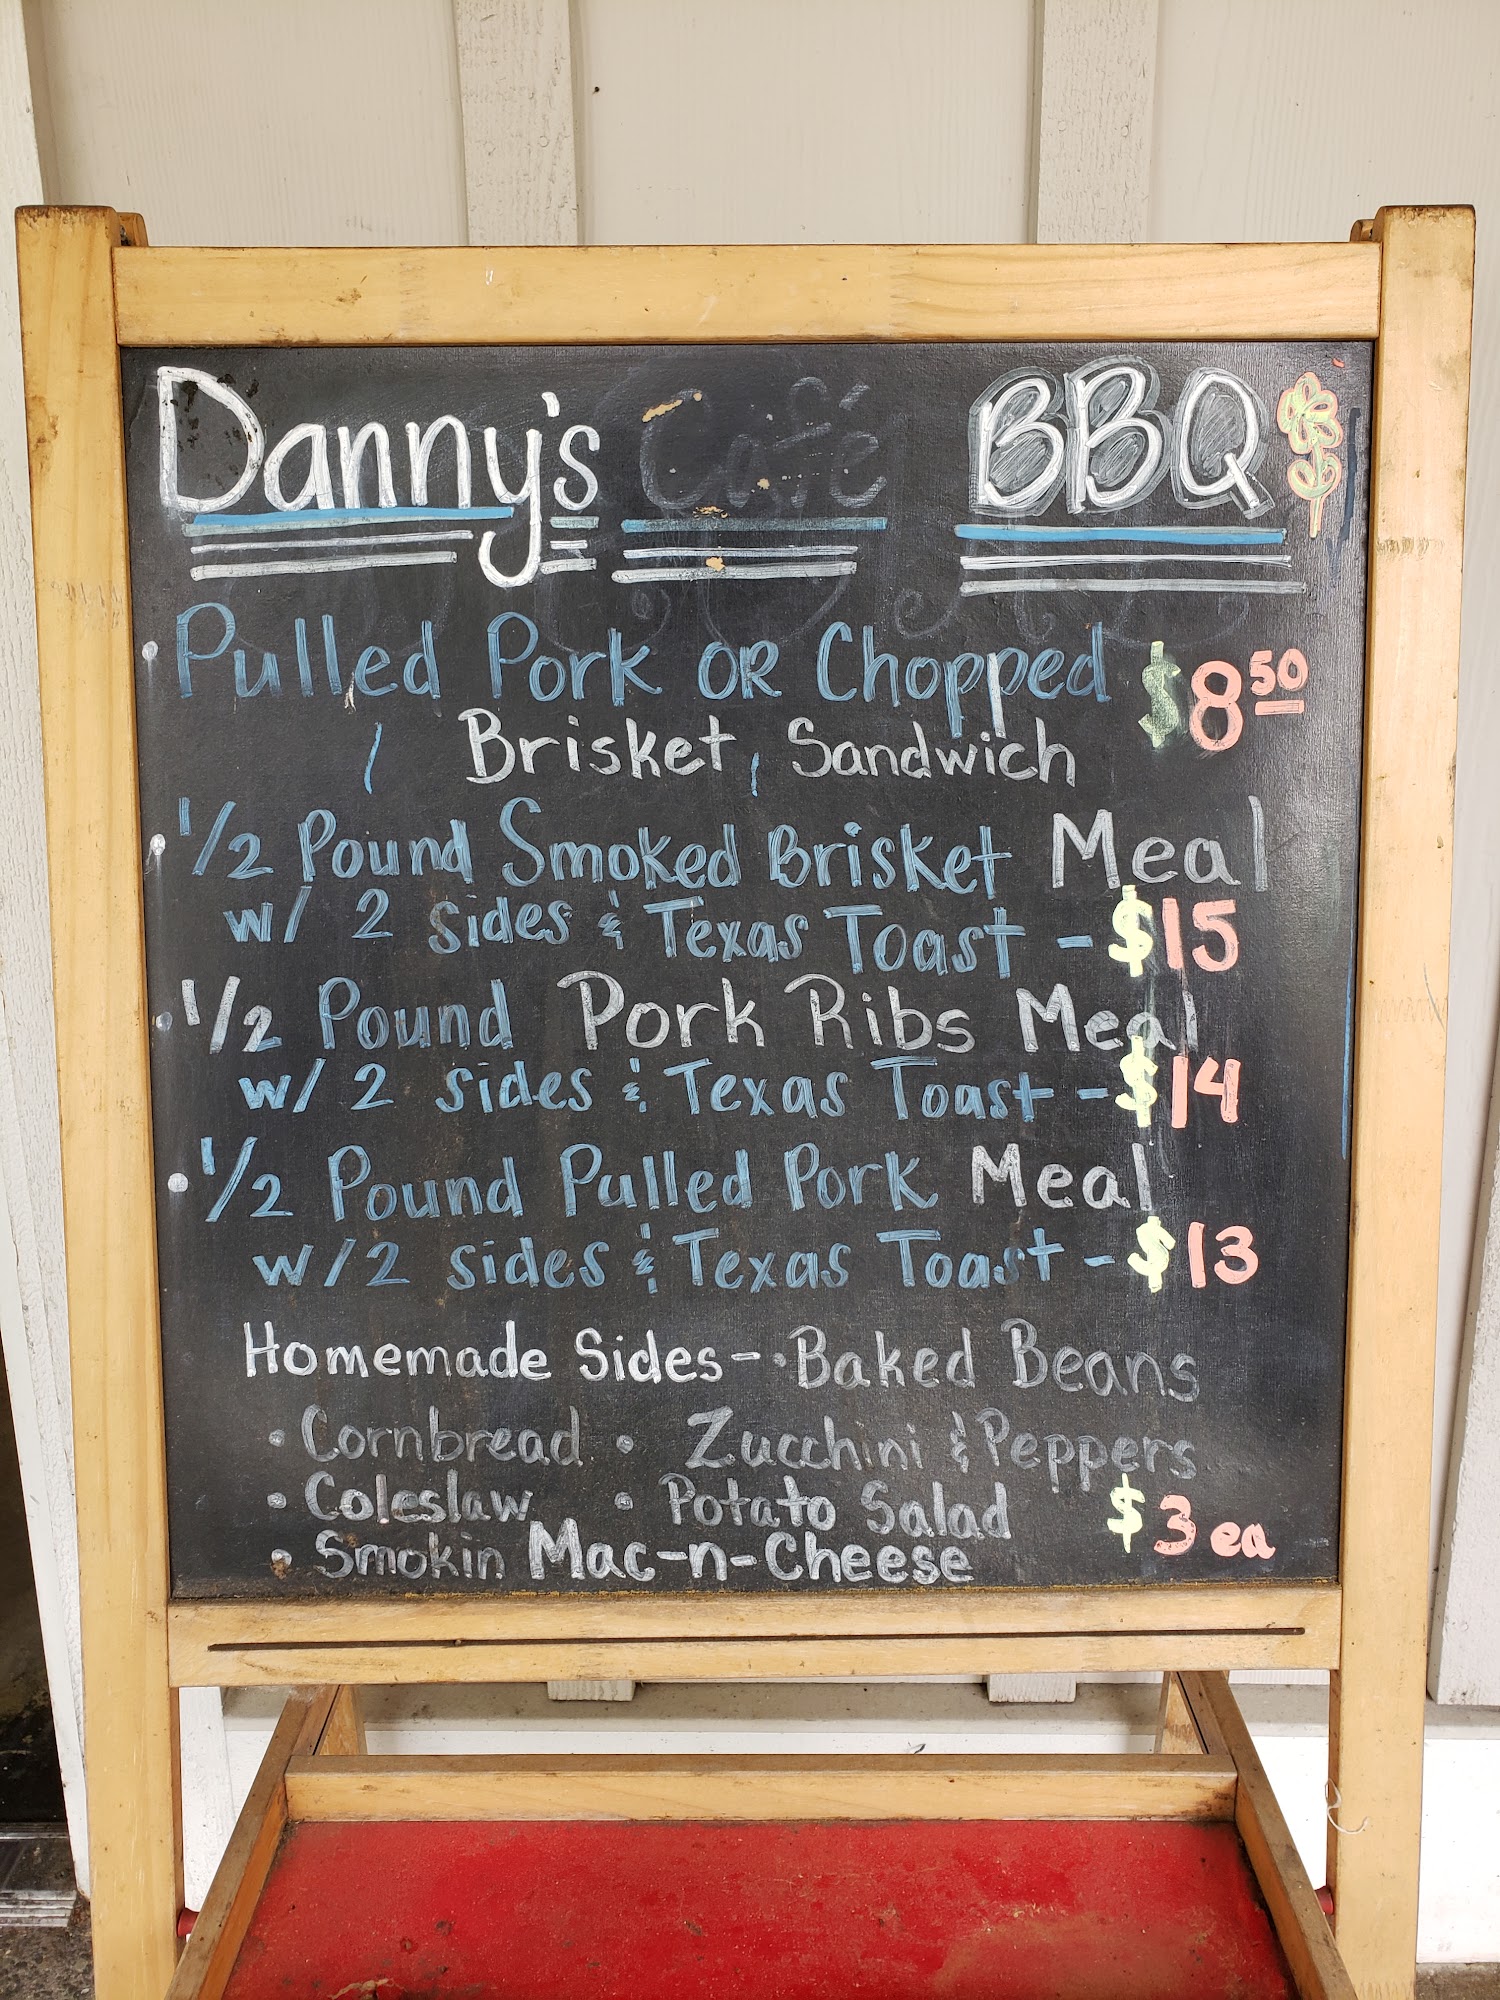 Danny's Café BBQ
• Pulled Pork OR Chopped $8 50
Brisket, Sandwich
• 1/2 Pound Smoked Brisket Meal
w/ 2 sides & Texas Toast - $15
• 1/2 Pound Pork Ribs Meal
w/ 2 sides & Texas Toast - $14
• 1/2 Pound Pulled Pork Meal
w/ 2 sides & Texas Toast - $13
Homemade Sides - • Baked Beans
• Cornbread • Zucchini & Peppers
• Coleslaw • Potato Salad $3 ea
• Smokin Mac-n-Cheese